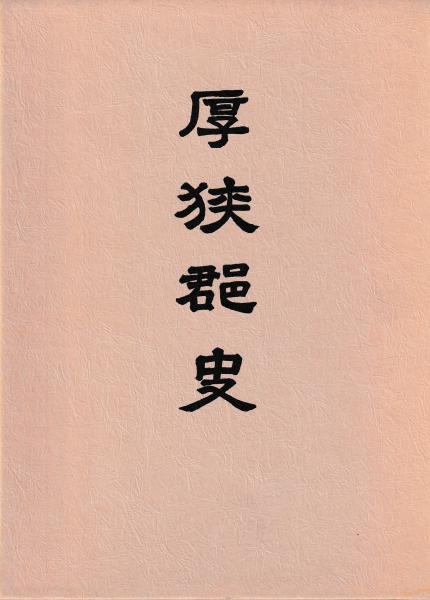 厚狭郡史